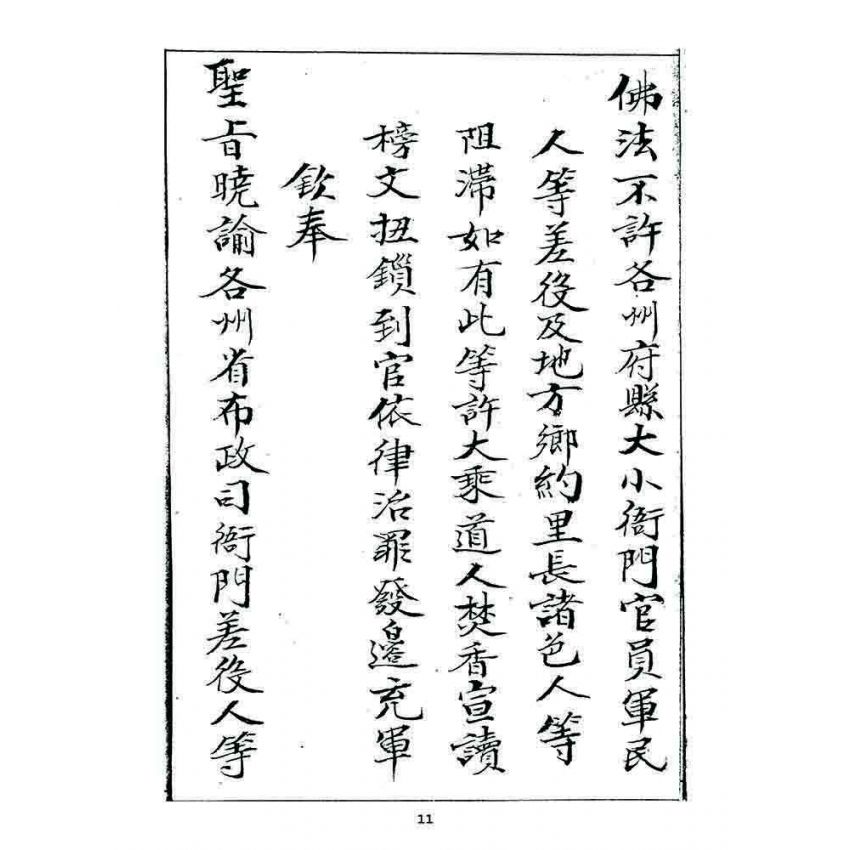 佛法不許各州府縣大小衙門官員軍民
人等差役及地方鄉約里長諸色人等
阻滯如有此等許大乘道人焚香宣讀
榜文扭鎖到官依律治罪發邊充軍
欽奉
聖旨曉諭各州省布政司衙門差役人等
11